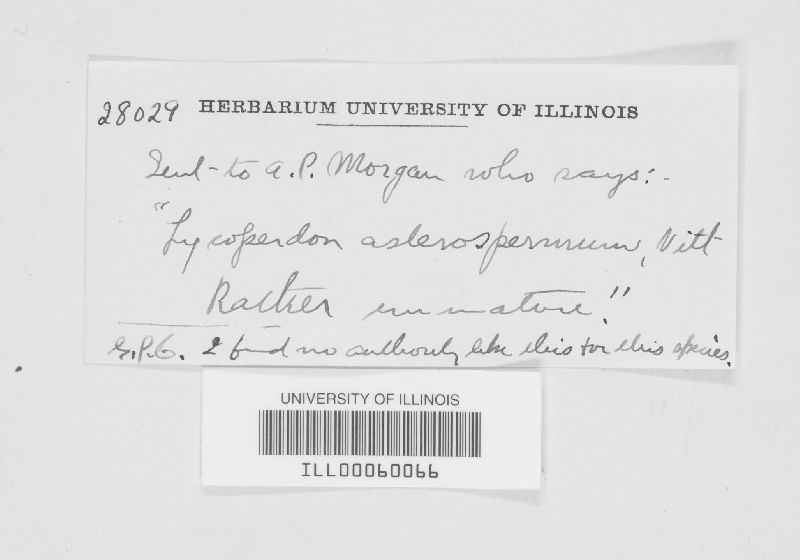 28029 HERBARIUM UNIVERSITY OF ILLINOIS
Sent to A.P. Morgan who says:-
"Lycoperdon asterospermum, Vitt
Rather immature."
G.P.C. I find no authority like this for this species.
UNIVERSITY OF ILLINOIS
ILL00060066